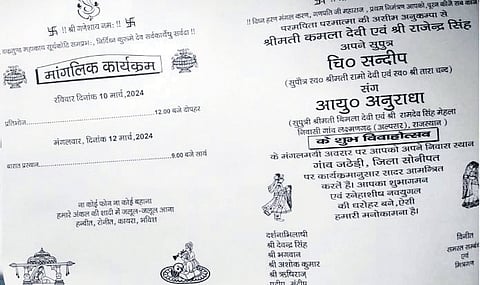 ॥ श्री गणेशाय नमः ॥
वक्रतुण्ड महाकाय सूर्यकोटि समप्रभः, निर्विघ्नं कुरूमे देव सर्वकार्येषु सर्वदा॥
मांगलिक कार्यक्रम
रविवार दिनांक 10 मार्च,2024
प्रतिभोज 12.00 बजे दोपहर
मंगलवार, दिनांक 12 मार्च,2024
बारात प्रस्थान 9.00 बजे सायं
ना कोई फोन ना कोई बहाना
हमारे अंकल की शादी में जलूल-जलूल आना
हन्वीत, रोनीत, कायरा, भविश
॥ विघ्न हरण मंगल करण, गणपति जी महाराज, प्रथम निमंत्रण आपको, पूरन कीजै सब काज
परमपिता परमात्मा की असीम अनुकम्पा से
श्रीमती कमला देवी एवं श्री राजेन्द्र सिंह
अपने सुपुत्र
चि० सन्दीप
(सुपौत्र स्व० श्रीमती रामो देवी एवं स्व० श्री तारा चन्द)
संग
आयु० अनुराधा
(सुपुत्री श्रीमती विमला देवी एवं श्री रामदेव सिंह मेहला
निवासी गांव लक्ष्मणगढ़ (अल्पसर), राजस्थान)
के शुभ विवाहोत्सव
के मंगलमयी अवसर पर आपको अपने निवास स्थान
गांव जठेड़ी, जिला सोनीपत
पर कार्यक्रमानुसार सादर आमन्त्रित
करते हैं। आपका शुभागमन
एवं स्नेहाशीष नवयुगल
की धरोहर बने,ऐसी
हमारी मनोकामना है।
दर्शनाभिलाषी
श्री देवन्द्र सिंह
श्री भगवान
श्री अशोक कुमार
श्री ऋषिराज
प्रदीप, संदीप
विनीत
समस्त सम्बंधी
एवं
मित्रगण